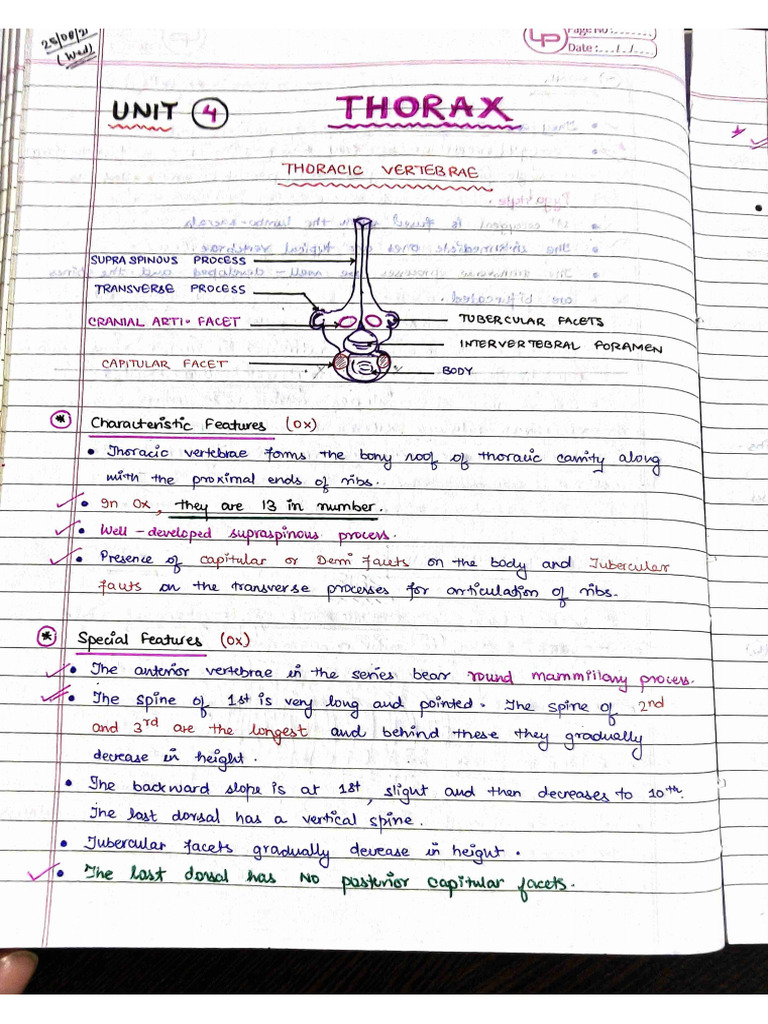 25/08/21
(Wed)
Page No:.......
Date:..../..../....
UNIT 4 THORAX
THORACIC VERTEBRAE
SUPRASPINOUS PROCESS
TRANSVERSE PROCESS
CRANIAL ARTI- FACET
CAPITULAR FACET
TUBERCULAR FACETS
INTERVERTEBRAL FORAMEN
BODY
* Characteristic Features (ox)
• Thoracic vertebrae forms the bony roof of thoracic cavity along
with the proximal ends of ribs.
• In Ox, they are 13 in number.
• Well-developed supraspinous process.
• Presence of capitular or Demi facets on the body and Tubercular
facets on the transverse processes for articulation of ribs.
* Special Features (ox)
• The anterior vertebrae in the series bear round mammiilary process.
• The spine of 1st is very long and pointed. The spine of 2nd
and 3rd are the longest and behind these they gradually
decrease in height.
• The backward slope is at 1st, slight and then decreases to 10th.
The last dorsal has a vertical spine.
• Tubercular facets gradually decrease in height.
• The last dorsal has NO posterior capitular facets.